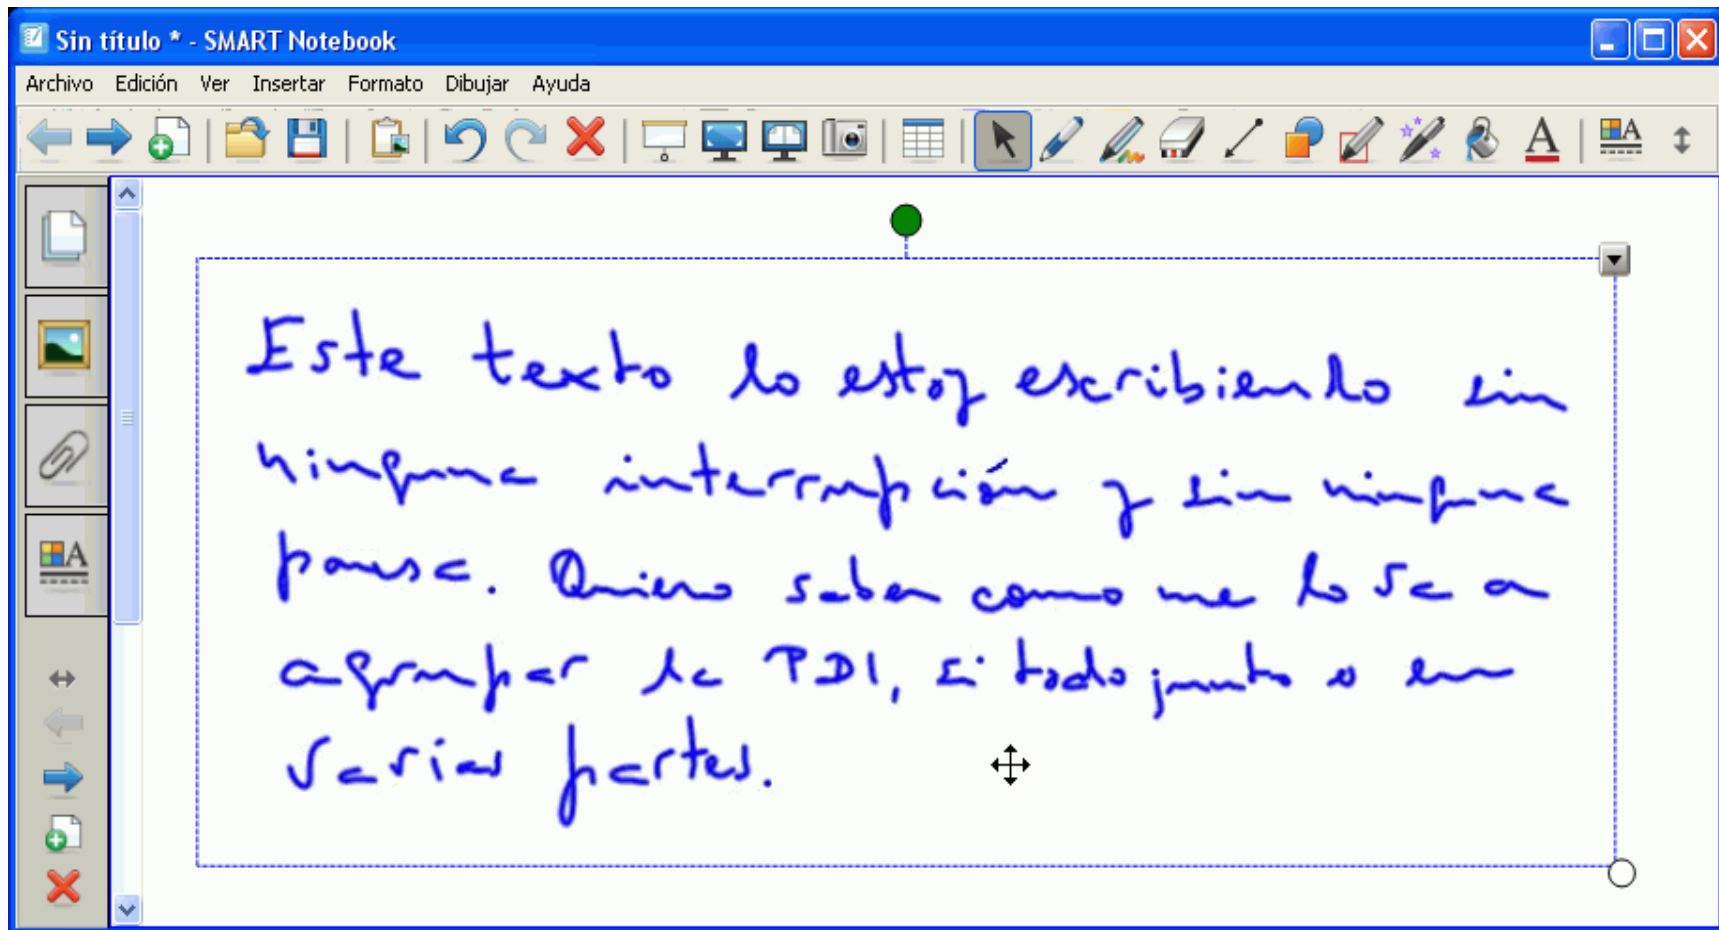 Sin título * - SMART Notebook
Archivo Edición Ver Insertar Formato Dibujar Ayuda
Este texto lo estoy escribiendo sin
ninguna interrupción y sin ninguna
pausa. Quiero saber como me lo va a
agrupar la PDI, si todo junto o en
varias partes.